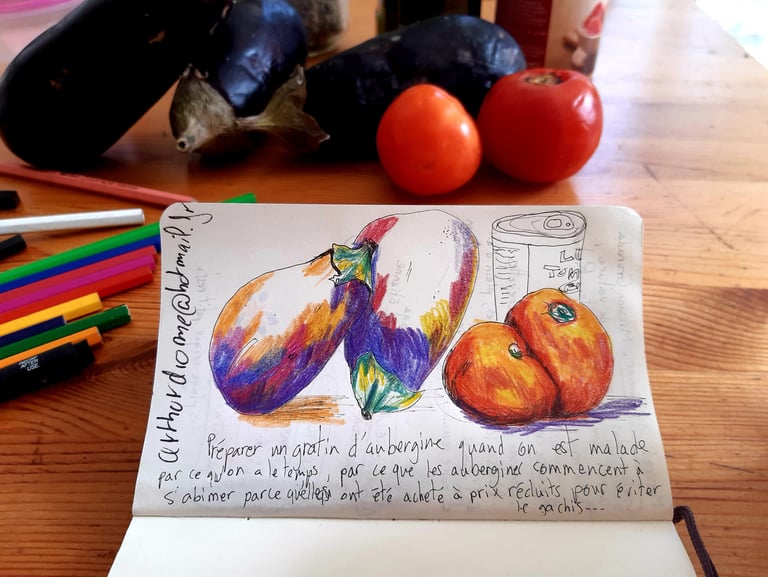 arthurdiome@hotmail.fr
Préparer un gratin d'aubergine quand on est malade
par ce qu'on a le temps, par ce que les aubergines commencent à
s'abimer parce qu'elles ont été acheté à prix réduits pour éviter
le gachis---